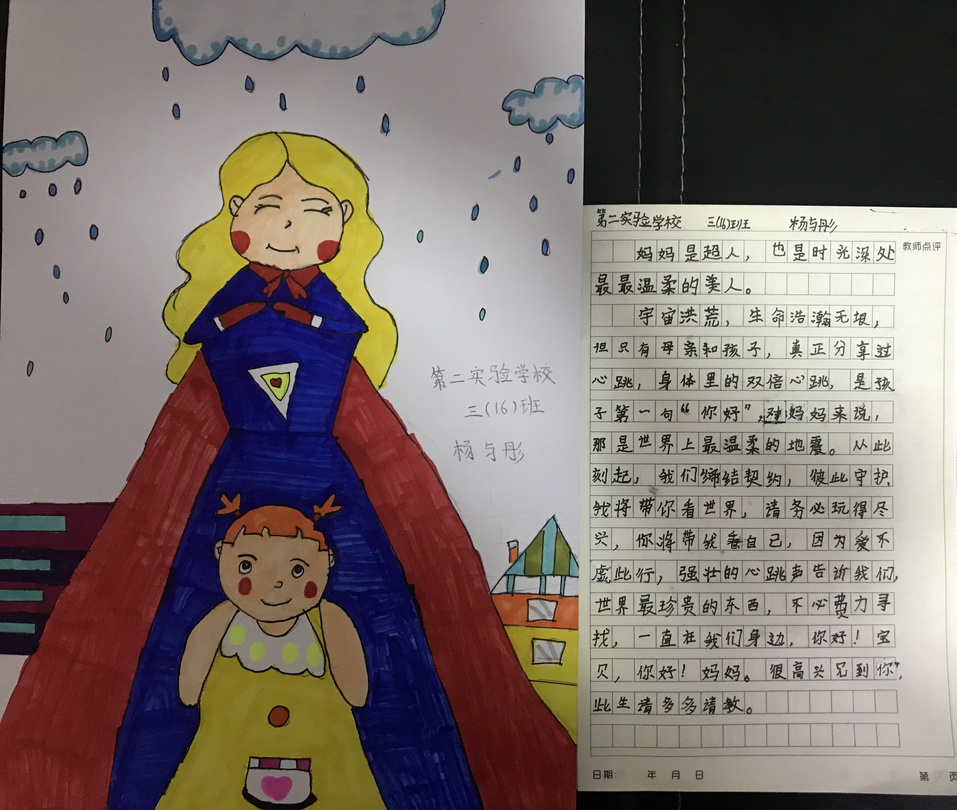 第二实验学校
三(16)班
杨与彤
第二实验学校 三(16)班 杨与彤
教师点评
妈妈是超人，也是时光深处
最最温柔的美人。
宇宙洪荒，生命浩瀚无垠，
但只有母亲和孩子，真正分享过
心跳，身体里的双倍心跳，是孩
子第一句“你好”，对妈妈来说，
那是世界上最温柔的地震。从此
刻起，我们缔结契约，彼此守护
我将带你看世界，请务必玩得尽
兴，你将带我看自己，因为爱不
虚此行，强壮的心跳声告诉我们，
世界最珍贵的东西，不必费力寻
找，一直在我们身边，你好！宝
贝，你好！妈妈。很高兴见到你，
此生请多多请教。
日期： 年 月 日 第 页